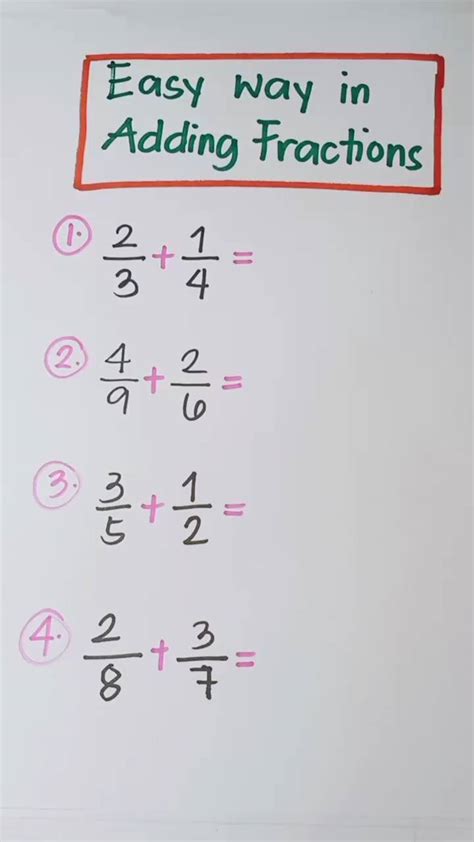 Easy way in
Adding Fractions
1. 2/3 + 1/4 =
2. 4/9 + 2/6 =
3. 3/5 + 1/2 =
4. 2/8 + 3/7 =